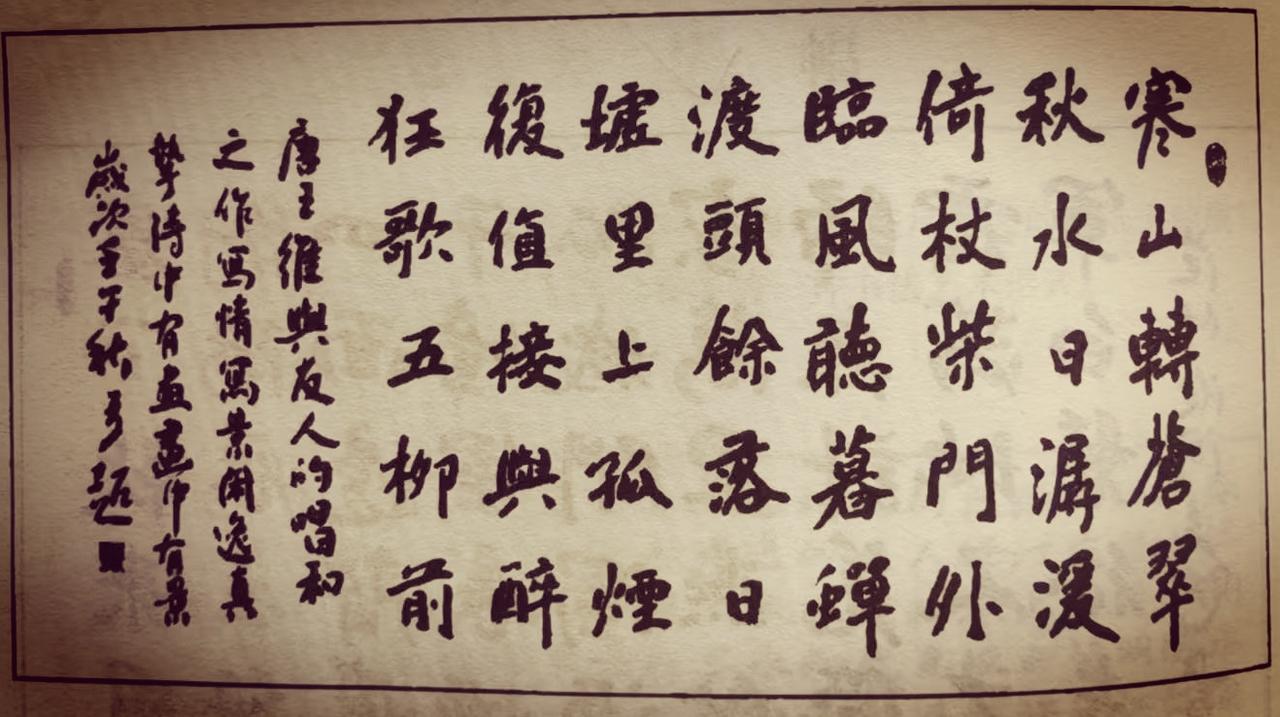 寒山轉蒼翠
秋水日潺湲
倚杖柴門外
臨風聽暮蟬
渡頭餘落日
墟里上孤煙
復值接與醉
狂歌五柳前
唐王維與友人的唱和
之作寫情寫景閑逸真
摯詩中有畫畫中有景
歲次壬午秋題